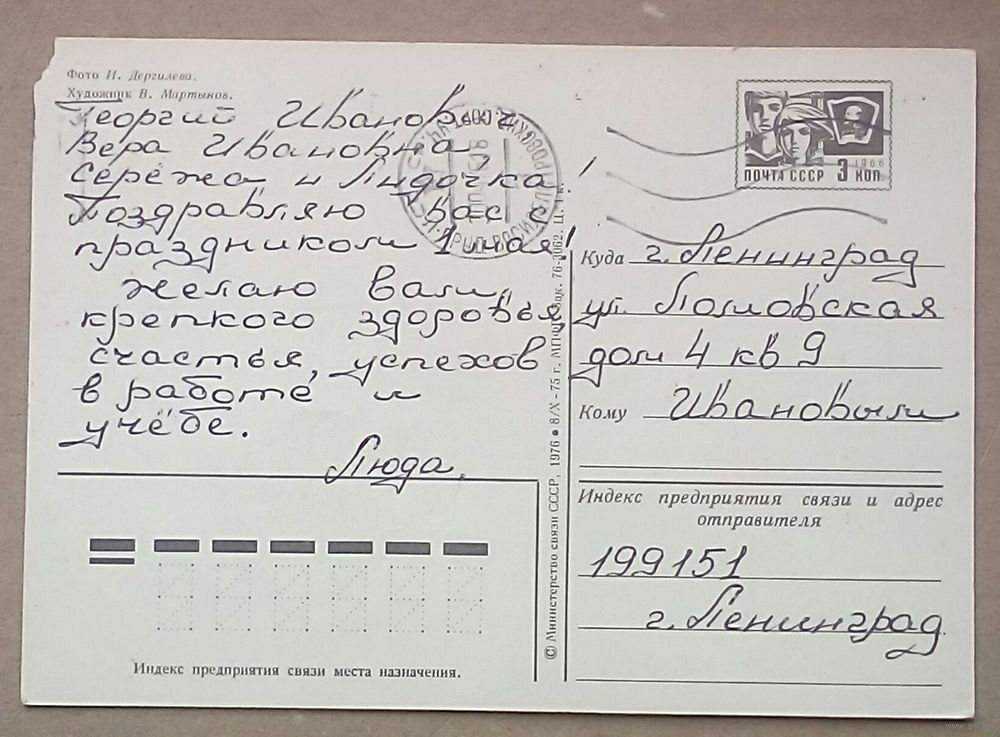 Фото И. Дергилева.
Художник В. Мартынов.
Георгий Иванович
Вера Ивановна,
Серёжа и Лидочка!
Поздравляю вас с
праздником 1 мая!
Желаю вам
крепкого здоровья,
счастья, успехов
в работе и
учёбе.
Люда.
1966
ПОЧТА СССР 3 КОП
Куда г. Ленинград
ул. Ломовская
дом 4 кв 9
Кому Ивановым
© Министерство связи СССР, 1976 ● 8/X - 75 г. МПФГ. Зак. 76-3062. Ц. 4 к.
Индекс предприятия связи и адрес
отправителя
199151
г. Ленинград
Индекс предприятия связи места назначения.